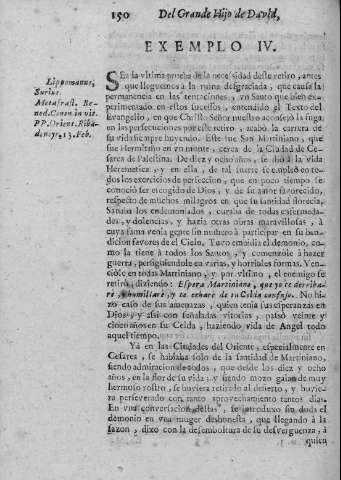 150 Del Grande Hijo de David,
EXEMPLO IV.
Lippomanus,
Surius.
Metafrast. Be-
ned. Canon in vit.
PP. Orient. Riba-
den. yc. 13. Feb.
SEa la vltima prueba de la necessidad deste retiro, antes
que lleguemos à la ruina desgraciada, que causa la
permanencia en las tentaciones, vn Santo que bien ex-
perimentado en estos sucessos, entendiò el Texto del
Evangelio, en que Christo Señor nuestro aconsejò la fuga
en las persecuciones por este retiro, acabò la carrera de
su vida siempre huyendo. Este fue San Martiniano, que
fue Hermitaño en vn monte, cerca de la Ciudad de Ce-
sarea de Palestina. De diez y ocho años, se diò à la vida
Heremetica, y en ella, de tal suerte se empleò en to-
dos los exercicios de perfeccion, que en poco tiempo se
conociò ser escogido de Dios, y de su amor favorecido,
respeto de muchos milagros en que su santidad florecia.
Sanaba los endemoniados, curaba de todas enfermeda-
des, y dolencias, y hazia otras maravillosas, à
cuya fama venia gente sin numero à participar en su ben-
dicion favores del Cielo. Tuvo embidia el demonio, co-
mo la tiene à todos los Santos, y comenzòle à hazer
guerra, persiguiendole en varias, y horribles formas. Ven-
ciòle en todas Martiniano, y por vltimo, el enemigo se
retirò, diziendo: Espera Martiniano, que yo te derriba-
rè, y humillarè, y te echarè de tu Celda confuso. No hi-
zo caso de sus amenazas, quien tenia sus esperanzas en
Dios, y assi con señaladas vitorias, passò veinte y
cinco años en su Celda, haziendo vida de Angel todo
aquel tiempo.
Yà en las Ciudades del Oriente, especialmente en
Cesarea, se hablaba solo de la santidad de Martiniano,
siendo admiracion de todos, que desde los diez y ocho
años, en la flor de su vida, y siendo mozo galan de muy
hermoso rostro, se huviera retirado al desierto, y huvie-
ra perseverado con tanto aprovechamiento tantos dias.
En vna conversacion destas, se introduxo sin duda el
demonio en vna muger deshonesta, que llegando à la
sazon, dixo con la desemboltura de su desverguenza, à
quien